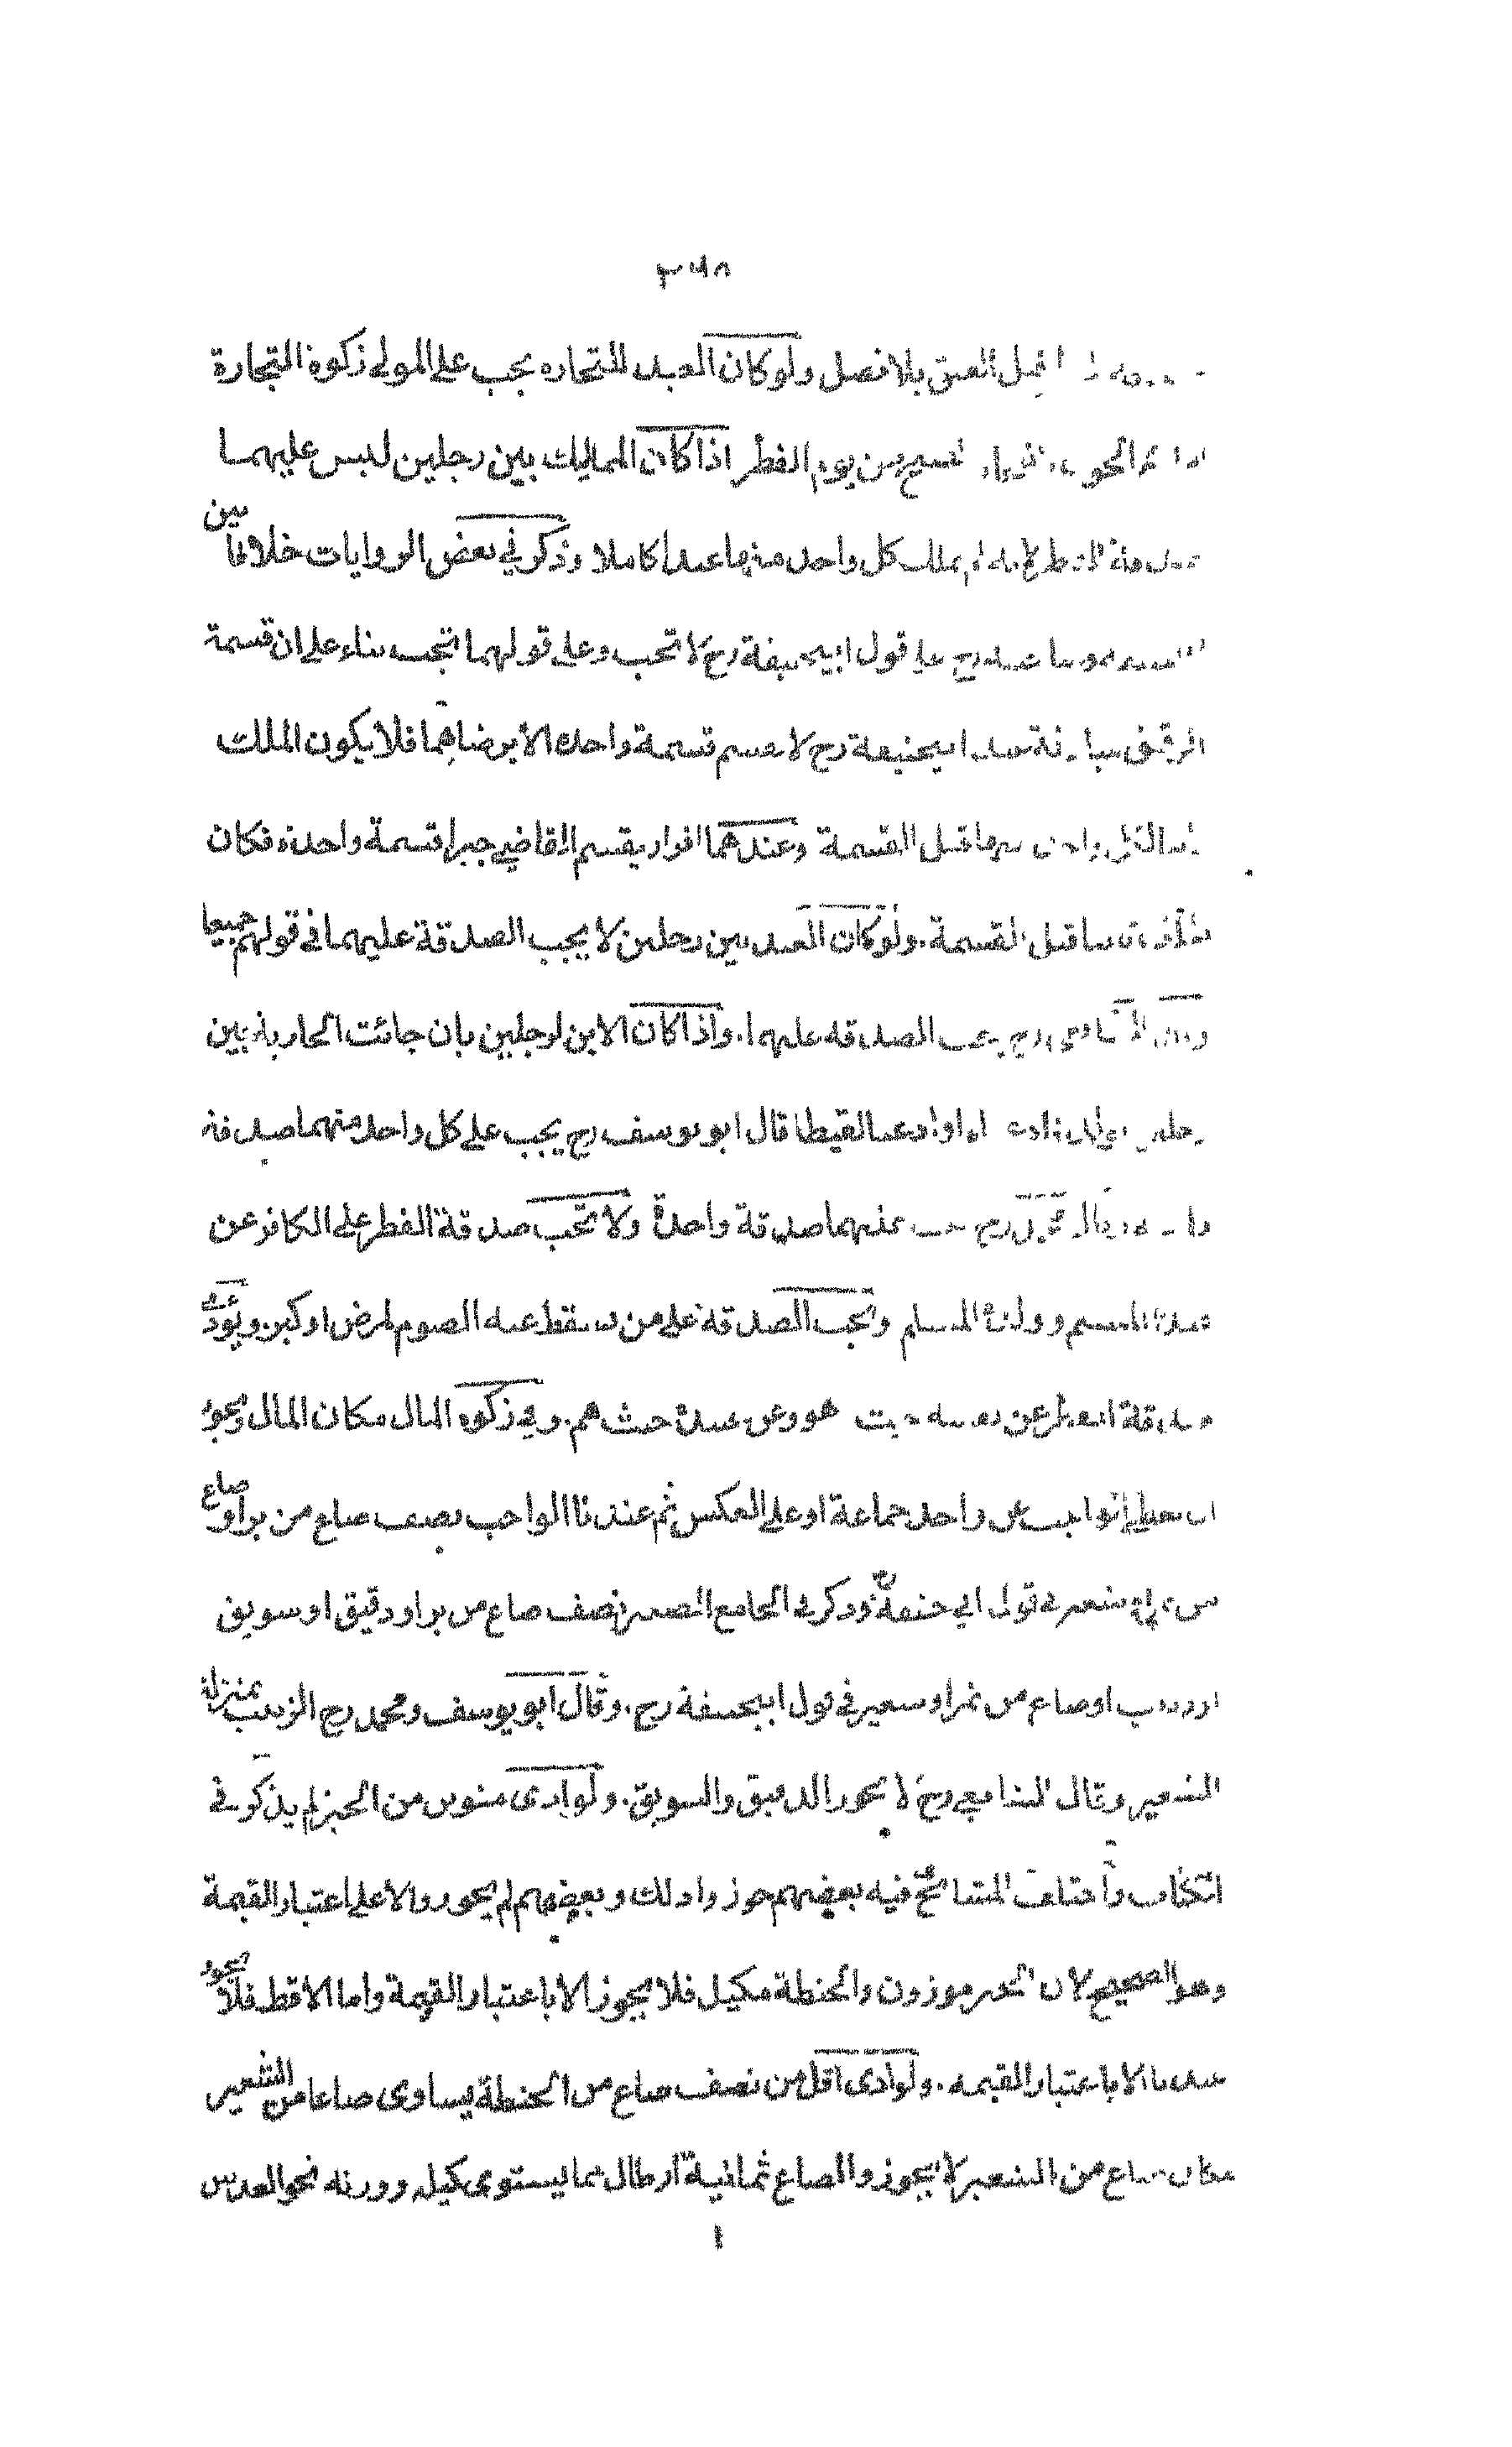 ٢٦٨
قبل العتق بلا فصل ولو كان العبد للتجاره يجب على المولى زكوة التجارة
الحول الصبح من يوم الفطر اذا كان المماليك بين رجلين ليس عليهما
لم يملك كل واحد منهما عبدا كاملا وذكر في بعض الروايات خلافا بين
رح على قول ابيحنيفة رح لا تجب وعلى قولهما تجب بناء على ان قسمة
الرقيق عند ابيحنيفة رح لا يقسم قسمة واحدة الا برضاهما فلا يكون الملك
قبل القسمة وعندهما افراد يقسم القاضي جبرا قسمة واحدة فكان
قبل القسمة. ولو كان العبد بين رجلين لا يجب الصدقة عليهما في قولهم جميعا
وقال الشافعي رح يجب الصدقه عليهما. واذا كان الابن لرجلين بان جائت الجارية بين
رجلين اوادعيا لقيطا قال ابو يوسف رح يجب على كل واحد منهما صدقة
رح يجب عنهما صدقة واحدة ولا تجب صدقة الفطر على الكافر عن
عبده المسلم وولده المسلم وتجب الصدقة على من يسقط عنه الصوم لمرض او كبر. ويؤدى
صدقة الفطر عن نفسه حيث هو وعن عبيده حيث هم. وفي زكوة المال مكان المال ويجوز
ان يعطى الواجب عن واحد جماعة او على العكس ثم عندنا الواجب نصف صاع من بر او صاع
من شعير في قول ابي حنيفة وذكر في الجامع الصغير نصف صاع من بر او دقيق او سويق
او زبيب او صاع من تمر او شعير في قول ابيحنيفة رح. وقال ابو يوسف ومحمد رح الزبيب بمنزلة
الشعير وقال الشافعي رح لا يجوز الدقيق والسويق. ولو ادى منوين من الخبز لم يذكر في
الكتاب واختلف المشائخ فيه بعضهم جوزوا ذلك وبعضهم لم يجوزوا الا على اعتبار القيمة
وهو الصحيح لان الخبز موزون والحنطة مكيل فلا يجوز الا باعتبار القيمة واما الاقط فلا يجوز
عندنا الا باعتبار القيمه. ولو ادى اقل من نصف صاع من الحنطة يساوى صاعا من الشعير
مكان صاع من الشعير لا يجوز والصاع ثمانية ارطال مما يستوى كيله ووزنه نحو العدس